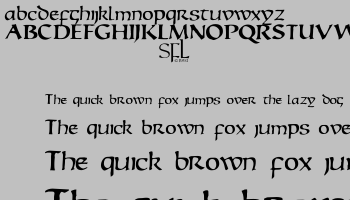 abcdefghijklmnopqrstuvwxyz
ABCDEFGHIJKLMNOPQRSTUVW
SFL
The quick brown fox jumps over the lazy dog
The quick brown fox jumps ove
The quick brown fox ju